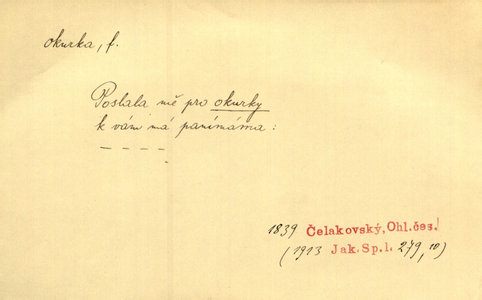 okurka, f.
Poslala mě pro okurky
k vám má panímáma:
– – – –
1839 Čelakovský, Ohl. čes.
(1913 Jak. Sp. I. 279, 10)